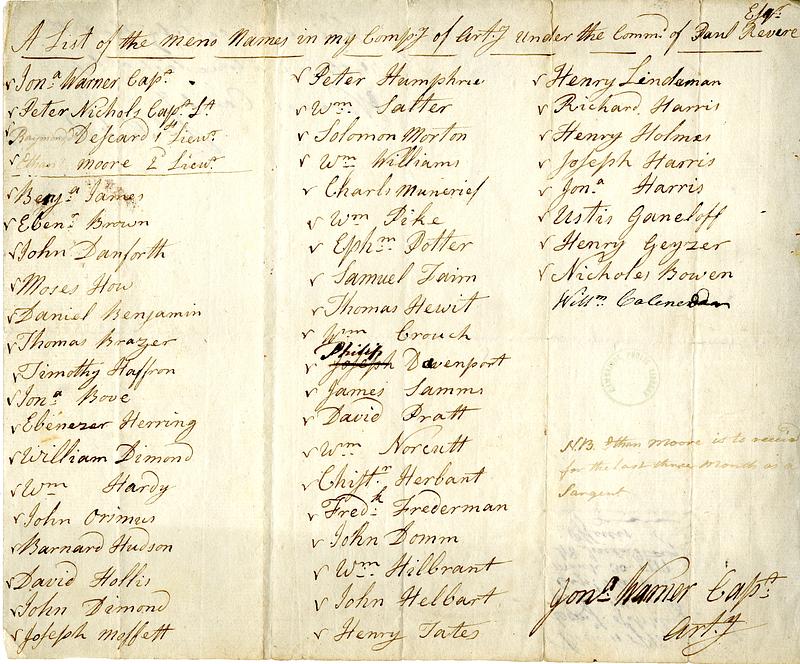 Esqr.
A List of the mens Names in my Compy of Arty under the Commd of Paul Revere
Jona Warner Capt
Peter Nichols Capt Lt
Raymond Deseard 1st Lieut.
Ethan moore 2d Lieut.
Benja James
Ebenr Brown
John Danforth
Moses How
Daniel Benjamin
Thomas Brazer
Timothy Haffron
Jona Bove
Ebenezer Herring
William Dimond
Wm Hardy
John Orimus
Barnard Hudson
David Hollis
John Dimond
Joseph Moffett
Peter Humphrie
Wm Salter
Solomon Morton
Wm Williams
Charls Muncrief
Wm Pike
Ephm Potter
Samuel Faim
Thomas Hewit
Wm Crouch
Philip
Joseph Davenport
James Samms
David Pratt
Wm Norcutt
Chistr Herbant
Fredk Frederman
John Domm
Wm Hilbrant
John Helbart
Henry Tates
Henry Lindeman
Richard Harris
Henry Holmes
Joseph Harris
Jona Harris
Ustis Ganeloff
Henry Geyzer
Nicholes Bowen
Willm
N.B. Ethan Moore is to receive
for the last three Month as a
Sargent
Jona Warner Capt
Arty